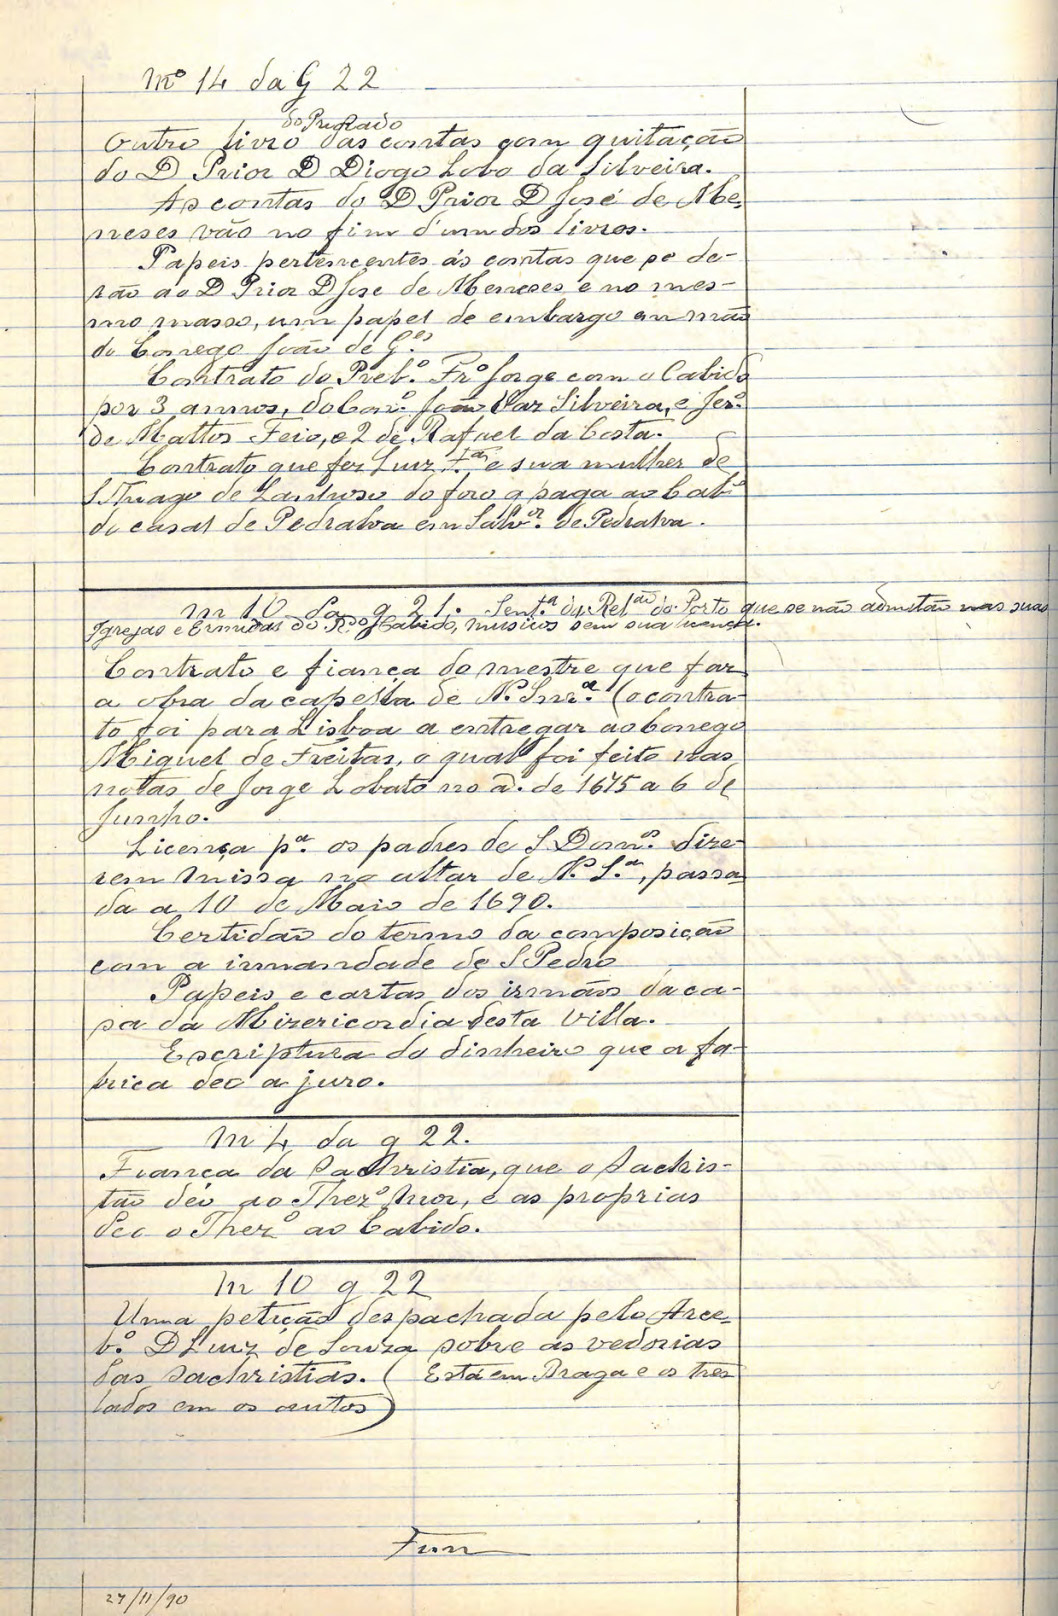 Mº 14 da G 22
do Priorado
Outro livro das contas com quitação
do D Prior D Diogo Lobo da Silveira.
As contas do D Prior D José de Me-
neses vão no fim d'um dos livros.
Papeis pertencentes ás contas que se de-
rão ao D Prior D Jose de Meneses e no mes-
mo masso, um papel de embargo em mão
do Conego João de G.es
Contrato do Preb.º Frº Jorge com o Cabido
por 3 annos, do Con.º João Vaz Silveira, e Jer.º
de Mattos Feio, e 2 de Rafael da Costa.
Contrato que fez Luiz F.ª e sua mulher de
S. Thiago de Lanhoso do foro q paga ao Cabº
do casal de Pedralva em Salv.or de Pedralva.
m 10 da g 21. Sent.ª da Rel.ão do Porto que se não admitão nas suas
Igrejas e Ermidas do R.º Cabido, musicos sem sua licença.
Contrato e fiança do mestre que faz
a obra da capella de N.ª Snr.ª (o contra-
to foi para Lisboa a entregar ao Conego
Miguel de Freitas, o qual foi feito nas
notas de Jorge Lobato no a. de 1675 a 6 de
Junho.
Licença p.ª os padres de S Dom.os dize-
rem missa no altar de N.ª S.ª, passa-
da a 10 de Maio de 1690.
Certidão do termo da composição
com a irmandade de S Pedro
Papeis e cartas dos irmãos da ca-
sa da Mizericordia desta Villa.
Escriptura do dinheiro que a fa-
brica deo a juro.
m 4 da g 22.
Fiança da Sachristia, que o Sachris-
tão deo ao Thezº mor, e as proprias
deo o Thezº ao Cabido.
m 10 g 22
Uma petição despachada pelo Arce-
b.º D Luiz de Souza sobre as vedorias
das Sachristias. (Está em Braga e os tres
lados em os autos)
Fim
27/11/90